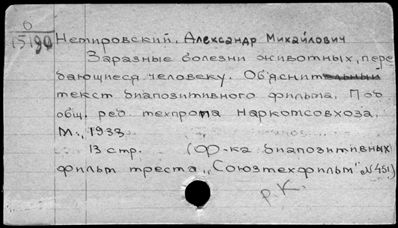 0
15190
Нетировский, Александр Михайлович
Заразные болезни животных, пере
дающиеся человеку. Об'яснительный
текст диапозитивного фильма. Под
общ. ред. техпрома Наркомсовхоза.
М., 1933.
13 стр. (Ф-ка диапозитивных
фильм треста „Союзтехфильм" №451)
р.К.